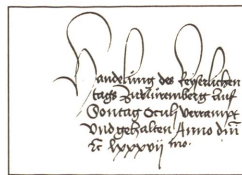 Handelung des keyserlichen
tags zu Nuremberg auf
Sontag Oculj verrampt
vnd gehalten Anno dm̄
rc lxxxvii mo.